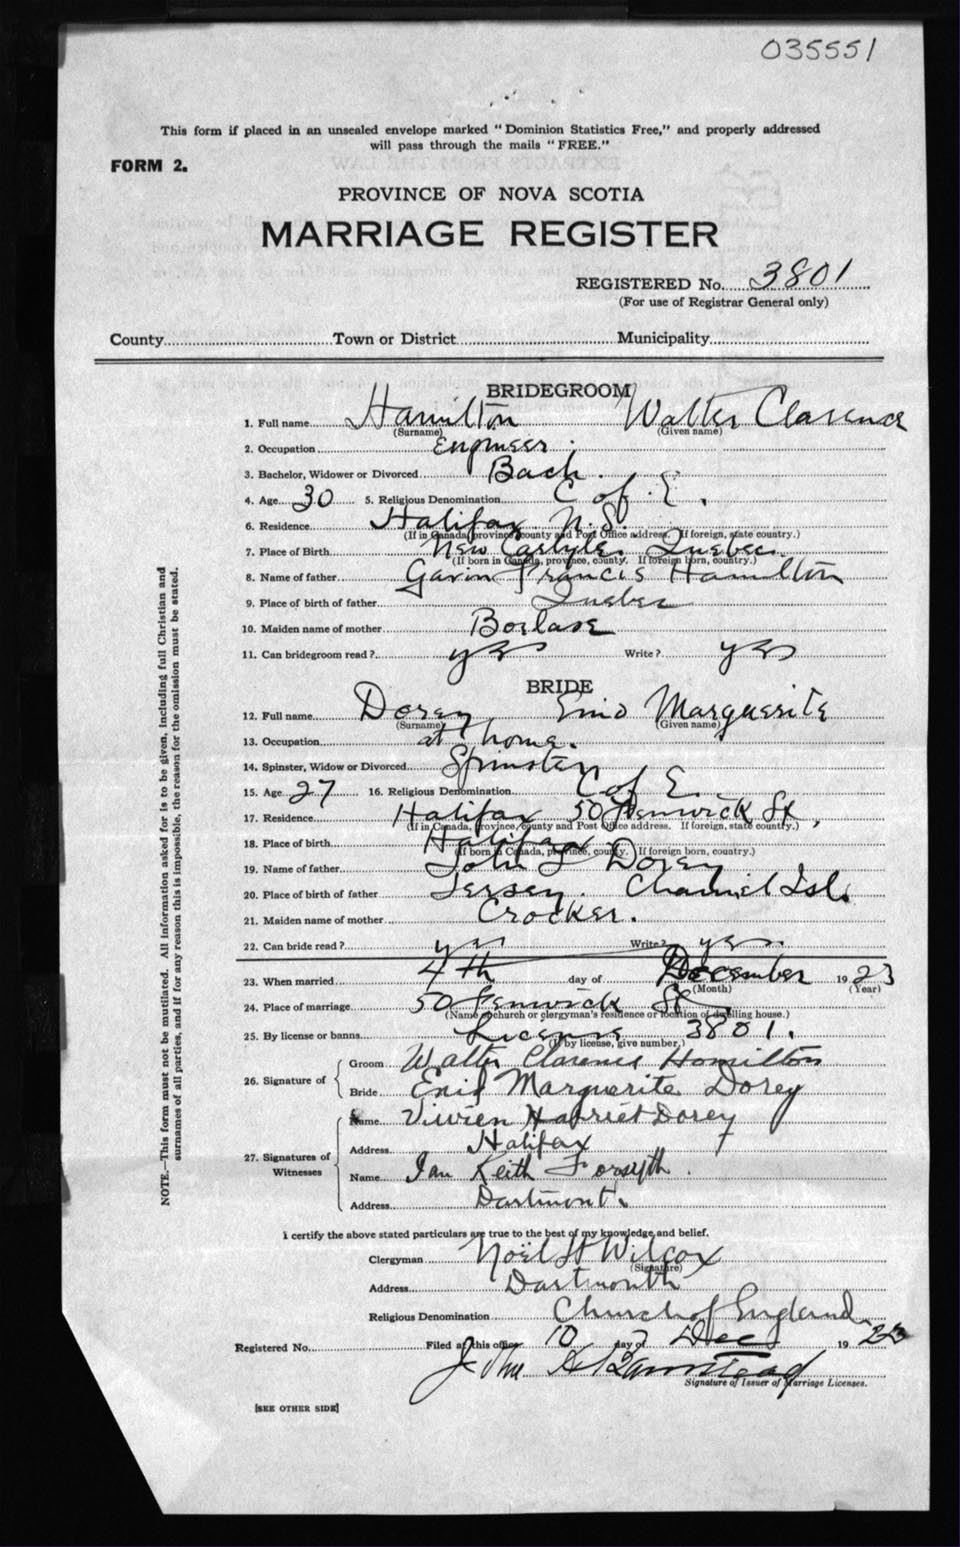 035551
This form if placed in an unsealed envelope marked "Dominion Statistics Free," and properly addressed
will pass through the mails "FREE."
FORM 2.
PROVINCE OF NOVA SCOTIA
MARRIAGE REGISTER
REGISTERED No. 3801
(For use of Registrar General only)
County Town or District Municipality
BRIDEGROOM
1. Full name Hamilton Walter Clarence
(Surname) (Given name)
2. Occupation Engineer.
3. Bachelor, Widower or Divorced Bach.
4. Age 30 5. Religious Denomination C of E.
6. Residence Halifax N.S.
(If in Canada, province, county and Post Office address. If foreign, state country.)
7. Place of Birth New Carlyle, Quebec.
(If born in Canada, province, county. If foreign born, country.)
8. Name of father Gavin Francis Hamilton
9. Place of birth of father Quebec
10. Maiden name of mother Borlase
11. Can bridegroom read? yes Write? yes
BRIDE
12. Full name Dorey Enid Marguerite
(Surname) (Given name)
13. Occupation at home.
14. Spinster, Widow or Divorced Spinster
15. Age 27 16. Religious Denomination C of E.
17. Residence Halifax 50 Fenwick St,
(If in Canada, province, county and Post Office address. If foreign, state country.)
18. Place of birth Halifax
(If born in Canada, province, county. If foreign born, country.)
19. Name of father John Dorey
20. Place of birth of father Jersey. Channel Isl.
21. Maiden name of mother Crocker.
22. Can bride read? yes Write? yes.
23. When married 4th day of December 1923
(Month) (Year)
24. Place of marriage 50 Fenwick St
(Name of church or clergyman's residence or location of dwelling house.)
25. By license or banns License 3801.
(If by license, give number,)
26. Signature of
Groom Walter Clarence Hamilton
Bride Enid Marguerite Dorey
27. Signatures of Witnesses
Name Vivien Harriet Dorey
Address Halifax
Name Ian Keith Forsyth.
Address Dartmouth.
I certify the above stated particulars are true to the best of my knowledge and belief.
Clergyman Noël H Wilcox
(Signature)
Address Dartmouth
Religious Denomination Church of England
Registered No. Filed at this office 10 day Dec 1923
John
Signature of Issuer of Marriage Licenses.
[SEE OTHER SIDE]
NOTE.—This form must not be mutilated. All information asked for is to be given, including full Christian and
surnames of all parties, and if for any reason this is impossible, the reason for the omission must be stated.